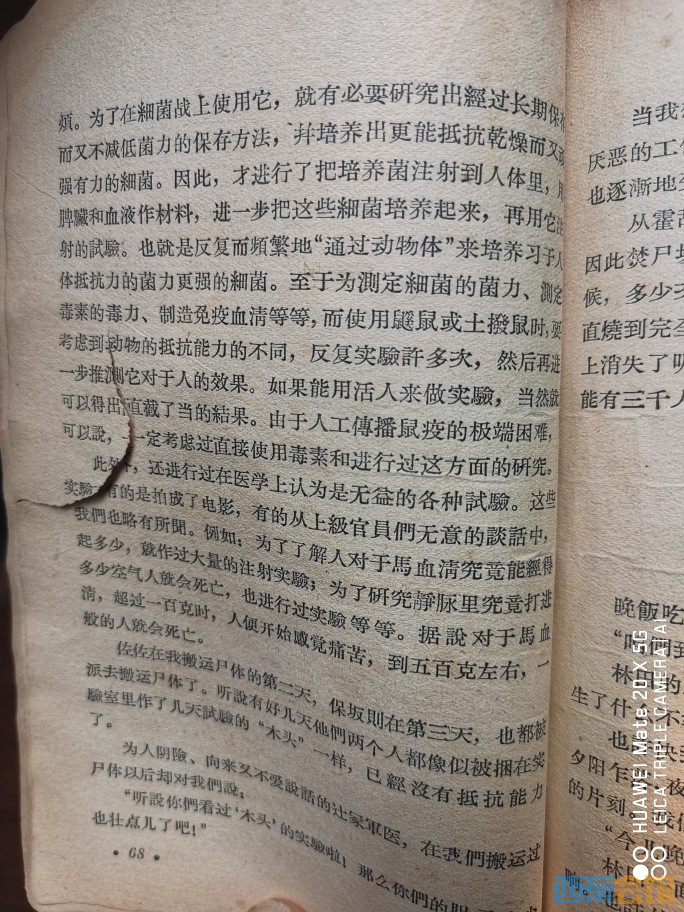 煩。为了在細菌战上使用它，就有必要研究出經过长期保存
而又不减低菌力的保存方法，幷培养出更能抵抗乾燥而又
强有力的細菌。因此，才进行了把培养菌注射到人体里，用
脾臟和血液作材料，进一步把这些細菌培养起来，再用它注
射的試驗。也就是反复而頻繁地“通过动物体”来培养习于人
体抵抗力的菌力更强的細菌。至于为測定細菌的菌力、測定
毒素的毒力、制造免疫血清等等，而使用鼹鼠或土撥鼠时，要
考虑到动物的抵抗能力的不同，反复实驗許多次，然后再进
一步推測它对于人的效果。如果能用活人来做实驗，当然就
可以得出直截了当的結果。由于人工傳播鼠疫的极端困难，
可以說，一定考虑过直接使用毒素和进行过这方面的研究。
此外，还进行过在医学上认为是无益的各种試驗。这些
实驗有的是拍成了电影，有的从上級官員們无意的談話中，
我們也略有所聞。例如：为了了解人对于馬血清究竟能經得
起多少，就作过大量的注射实驗；为了研究靜脉里究竟打进
多少空气人就会死亡，也进行过实驗等等。据說对于馬血
清，超过一百克时，人便开始感觉痛苦，到五百克左右，一
般的人就会死亡。
佐佐在我搬运尸体的第二天，保坂則在第三天，也都被
派去搬运尸体了。听說有好几天他們两个人都像似被捆在实
驗室里作了几天試驗的“木头”一样，已經沒有抵抗能力
了。
为人阴險、向来又不愛說話的辻家軍医，在我們搬运过
尸体以后却对我們說：
“听說你們看过‘木头’的实驗啦！那么你們的胆
也壮点儿了吧！”
• 68 •
当我
厌恶的工
也逐漸地
从霍
因此焚尸
候，多少
直燒到完
上消失了
能有三千人
晚飯吃
林田的
生了什
也
夕阳
的片刻
“今
林田
HUAWEI Mate 20 X 5G
LEICA TRIPLE CAMERA | AI